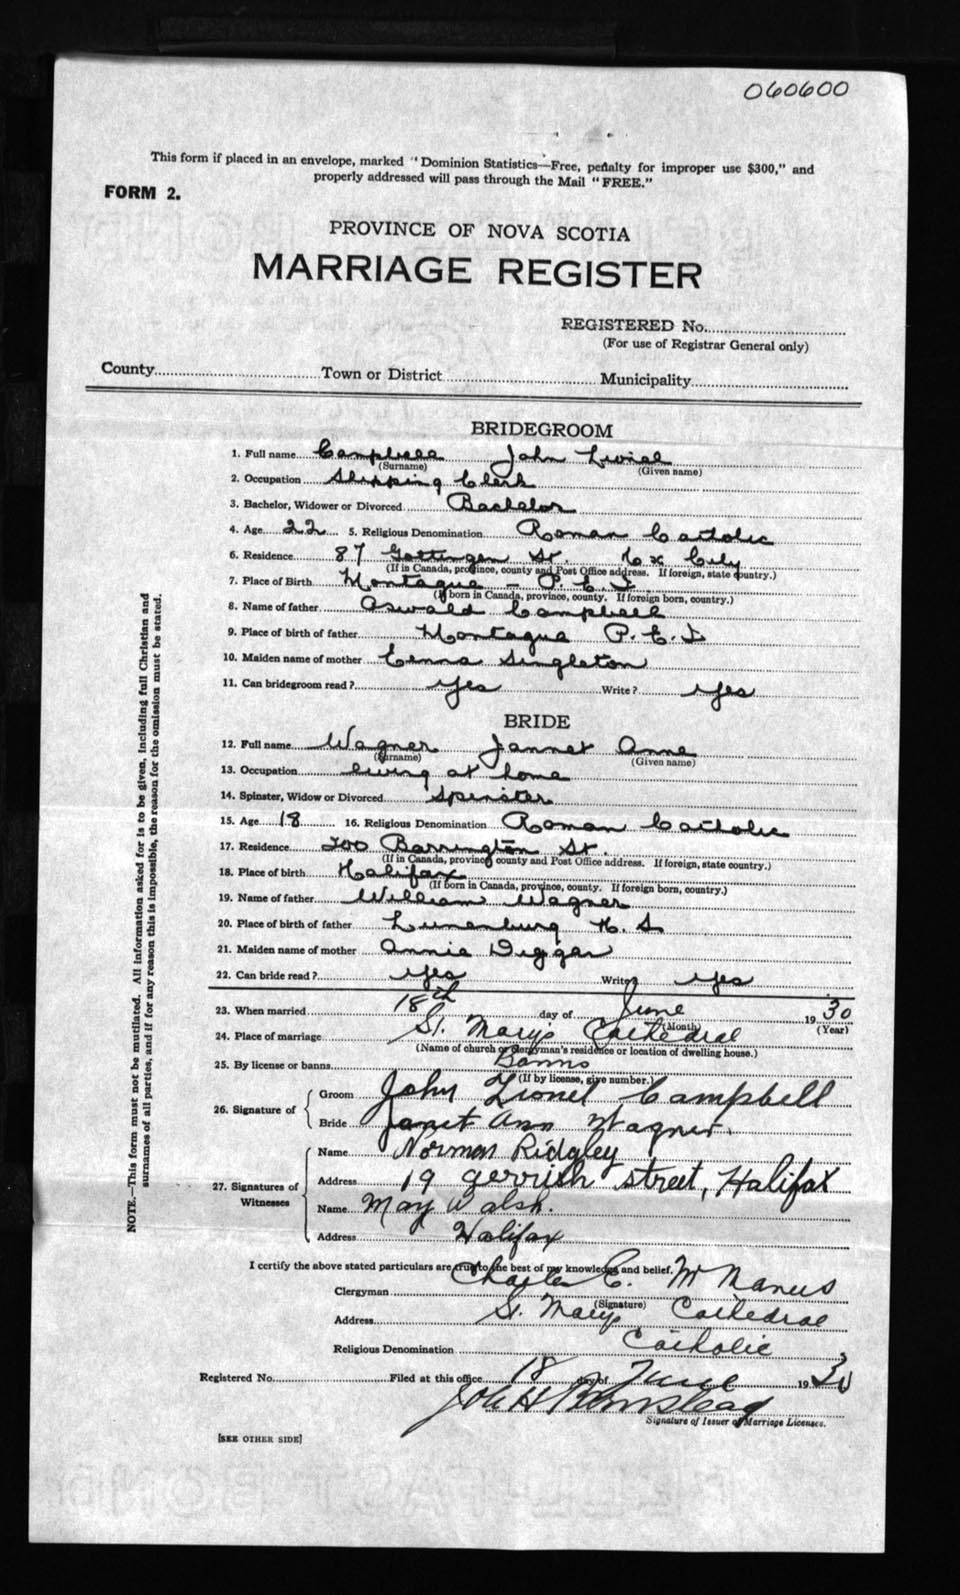 060600
This form if placed in an envelope, marked "Dominion Statistics—Free, penalty for improper use $300," and
properly addressed will pass through the Mail "FREE."
FORM 2.
PROVINCE OF NOVA SCOTIA
MARRIAGE REGISTER
REGISTERED No.
(For use of Registrar General only)
County Town or District Municipality
BRIDEGROOM
1. Full name Campbell John Lionel
(Surname) (Given name)
2. Occupation Shipping Clerk
3. Bachelor, Widower or Divorced Bachelor
4. Age 22 5. Religious Denomination Roman Catholic
6. Residence 87 Gottingen St. Hx City
(If in Canada, province, county and Post Office address. If foreign, state country.)
7. Place of Birth Montague - P.E.I
(If born in Canada, province, county. If foreign born, country.)
8. Name of father Oswald Campbell
9. Place of birth of father Montague P.E.I
10. Maiden name of mother Emma Singleton
11. Can bridegroom read? Yes Write? Yes
BRIDE
12. Full name Wagner Jannet Anne
(Surname) (Given name)
13. Occupation living at home
14. Spinster, Widow or Divorced Spinster
15. Age 18 16. Religious Denomination Roman Catholic
17. Residence 200 Barrington St.
(If in Canada, province, county and Post Office address. If foreign, state country.)
18. Place of birth Halifax
(If born in Canada, province, county. If foreign born, country.)
19. Name of father William Wagner
20. Place of birth of father Lunenburg N.S
21. Maiden name of mother Annie
22. Can bride read? Yes Write? Yes
23. When married 18th day of June 1930
(Month) (Year)
24. Place of marriage St. Mary's Cathedral
(Name of church or clergyman's residence or location of dwelling house.)
25. By license or banns Banns
(If by license, give number.)
26. Signature of Groom John Lionel Campbell
Bride Janet Ann Wagner.
27. Signatures of Witnesses Name Norman Ridgley
Address 19 gerrish street, Halifax
Name May Walsh.
Address Halifax
I certify the above stated particulars are true to the best of my knowledge and belief.
Clergyman Charles E. McManus
(Signature)
Address St. Mary's Cathedral
Religious Denomination Catholic
Registered No. Filed at this office 18 day of June 1930
Signature of Issuer of Marriage Licenses.
[SEE OTHER SIDE]
NOTE.—This form must not be mutilated. All information asked for is to be given, including full Christian and
surnames of all parties, and if for any reason this is impossible, the reason for the omission must be stated.